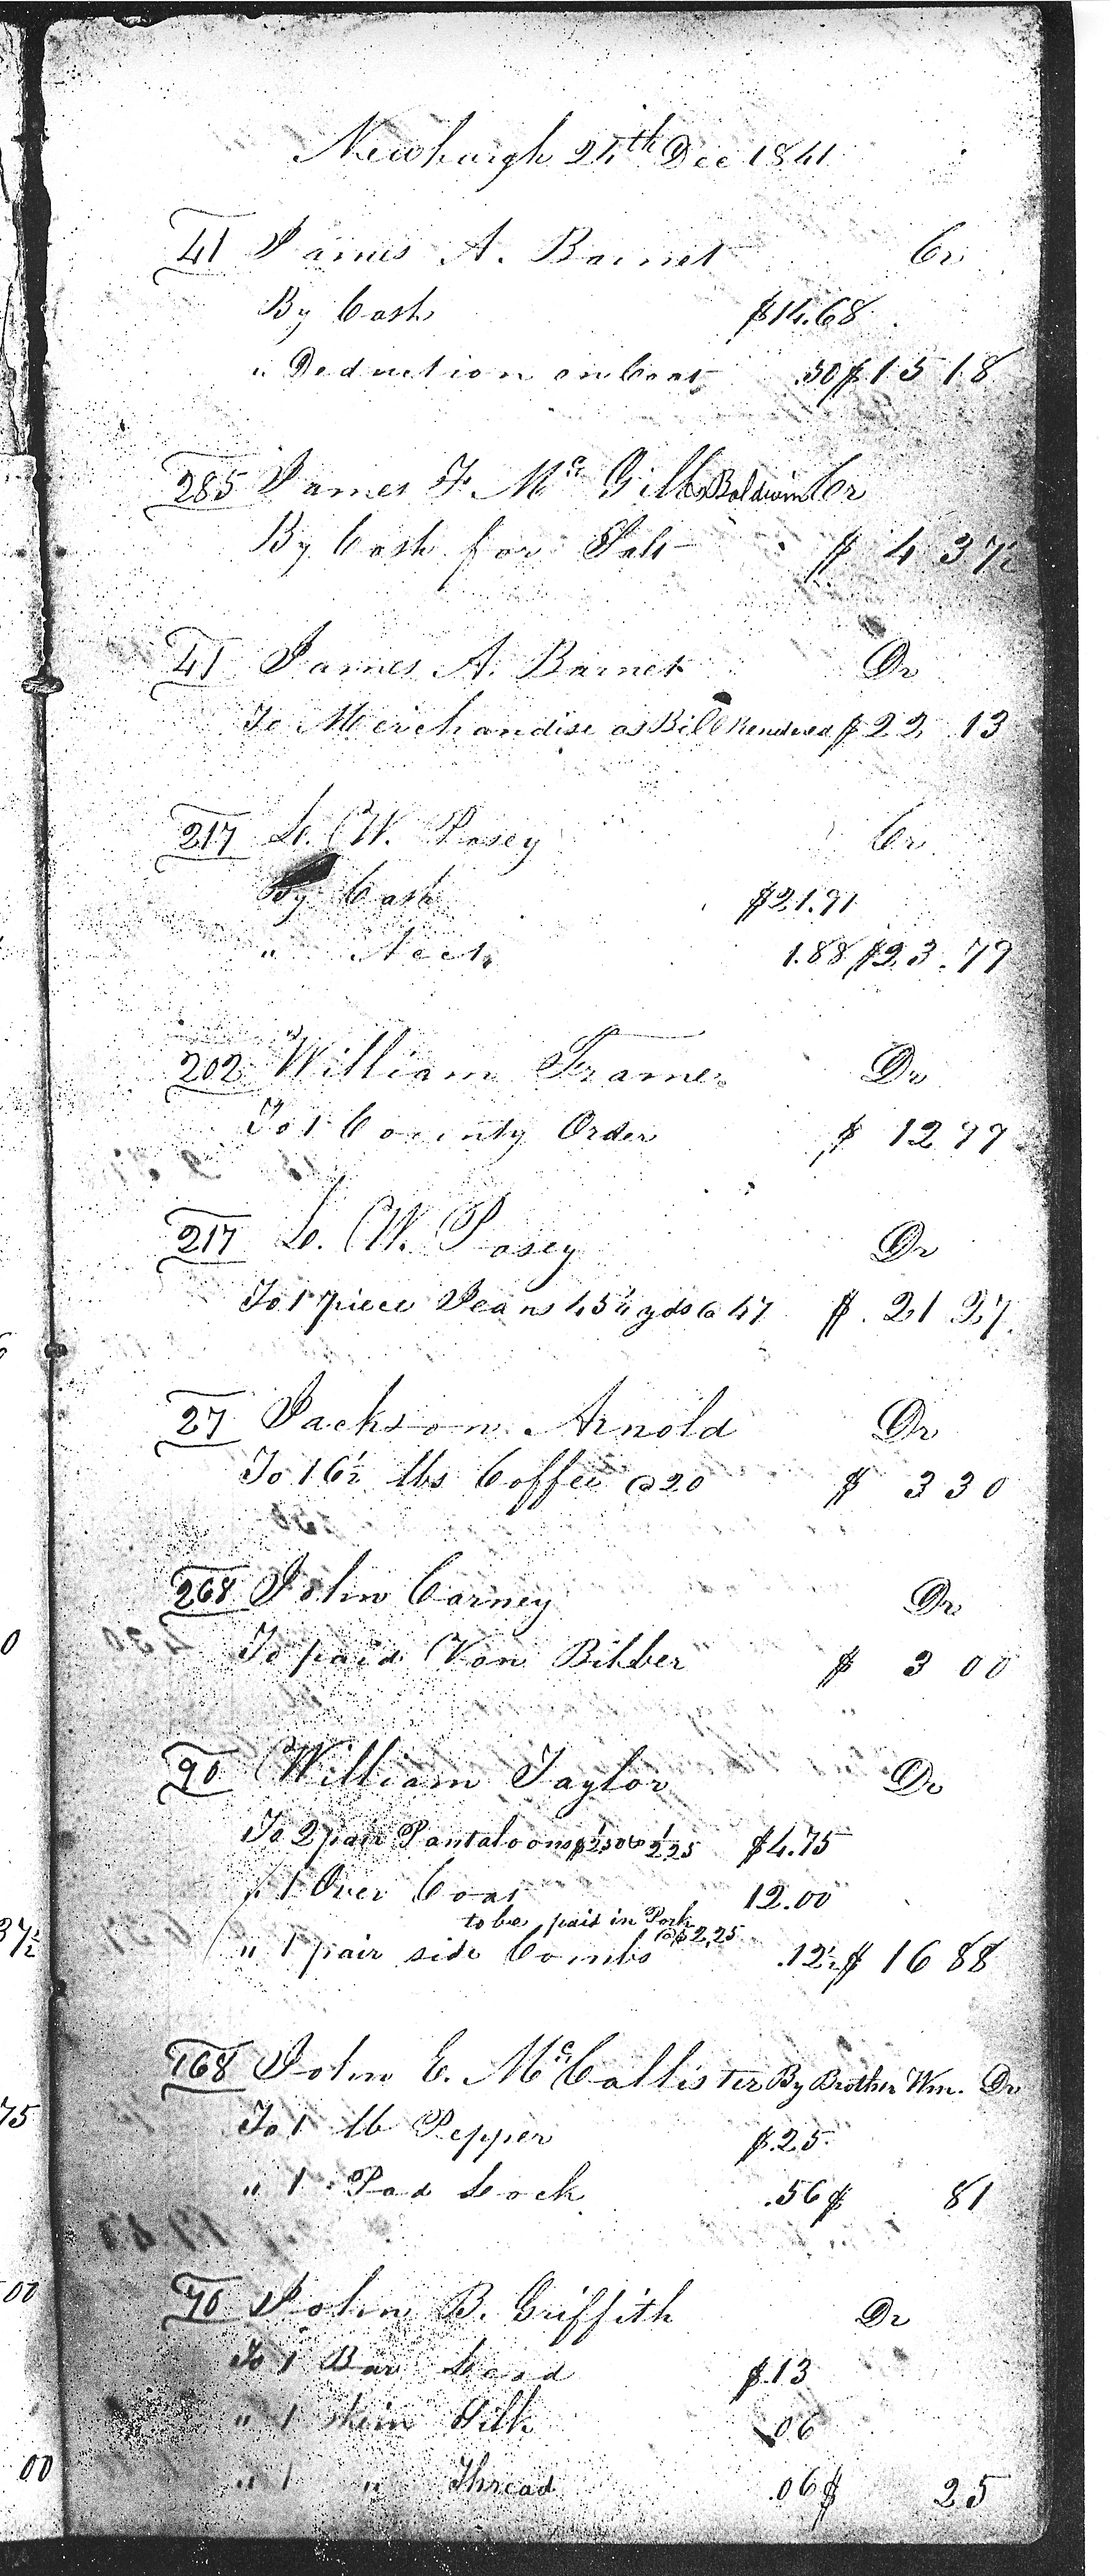 Newburgh 24th Dec 1841
41 James A. Barnet Cr
By Cash $14.68
" Deduction on Coat .50 $15 18
285 James F. McGill Baldwin Cr
By Cash for Salt $ 4 37½
41 James A. Barnet Dr
To Merchandise as Bill Rendered $22 13
217 L. W. Posey Cr
By Cash $21.91
" Acct, 1.88 $23.79
202 William Frame Dr
To 1 County Order $ 12 99
217 L. W. Posey Dr
To 1 piece Jeans 45¼ yds @ 47 $ 21 27
27 Jackson Arnold Dr
To 16½ lbs Coffee @ 20 $ 3 30
268 John Carney Dr
To paid Van Bibber $ 3 00
90 William Taylor Dr
To 2 pair Pantaloons $2,50 & 2,25 $4.75
" 1 Over Coat 12.00
to be paid in Pork
@ $2,25
" 1 pair side Combs .12½ $ 16 88
168 John E. McCallister By Brother Wm. Dr
To 1 lb Pepper $.25
" 1 Pad Lock .56 $ 81
70 John B. Griffith Dr
To 1 Bar Lead $.13
" 1 skin Silk .06
" 1 " Thread .06 $ 25
37½
75
00
00